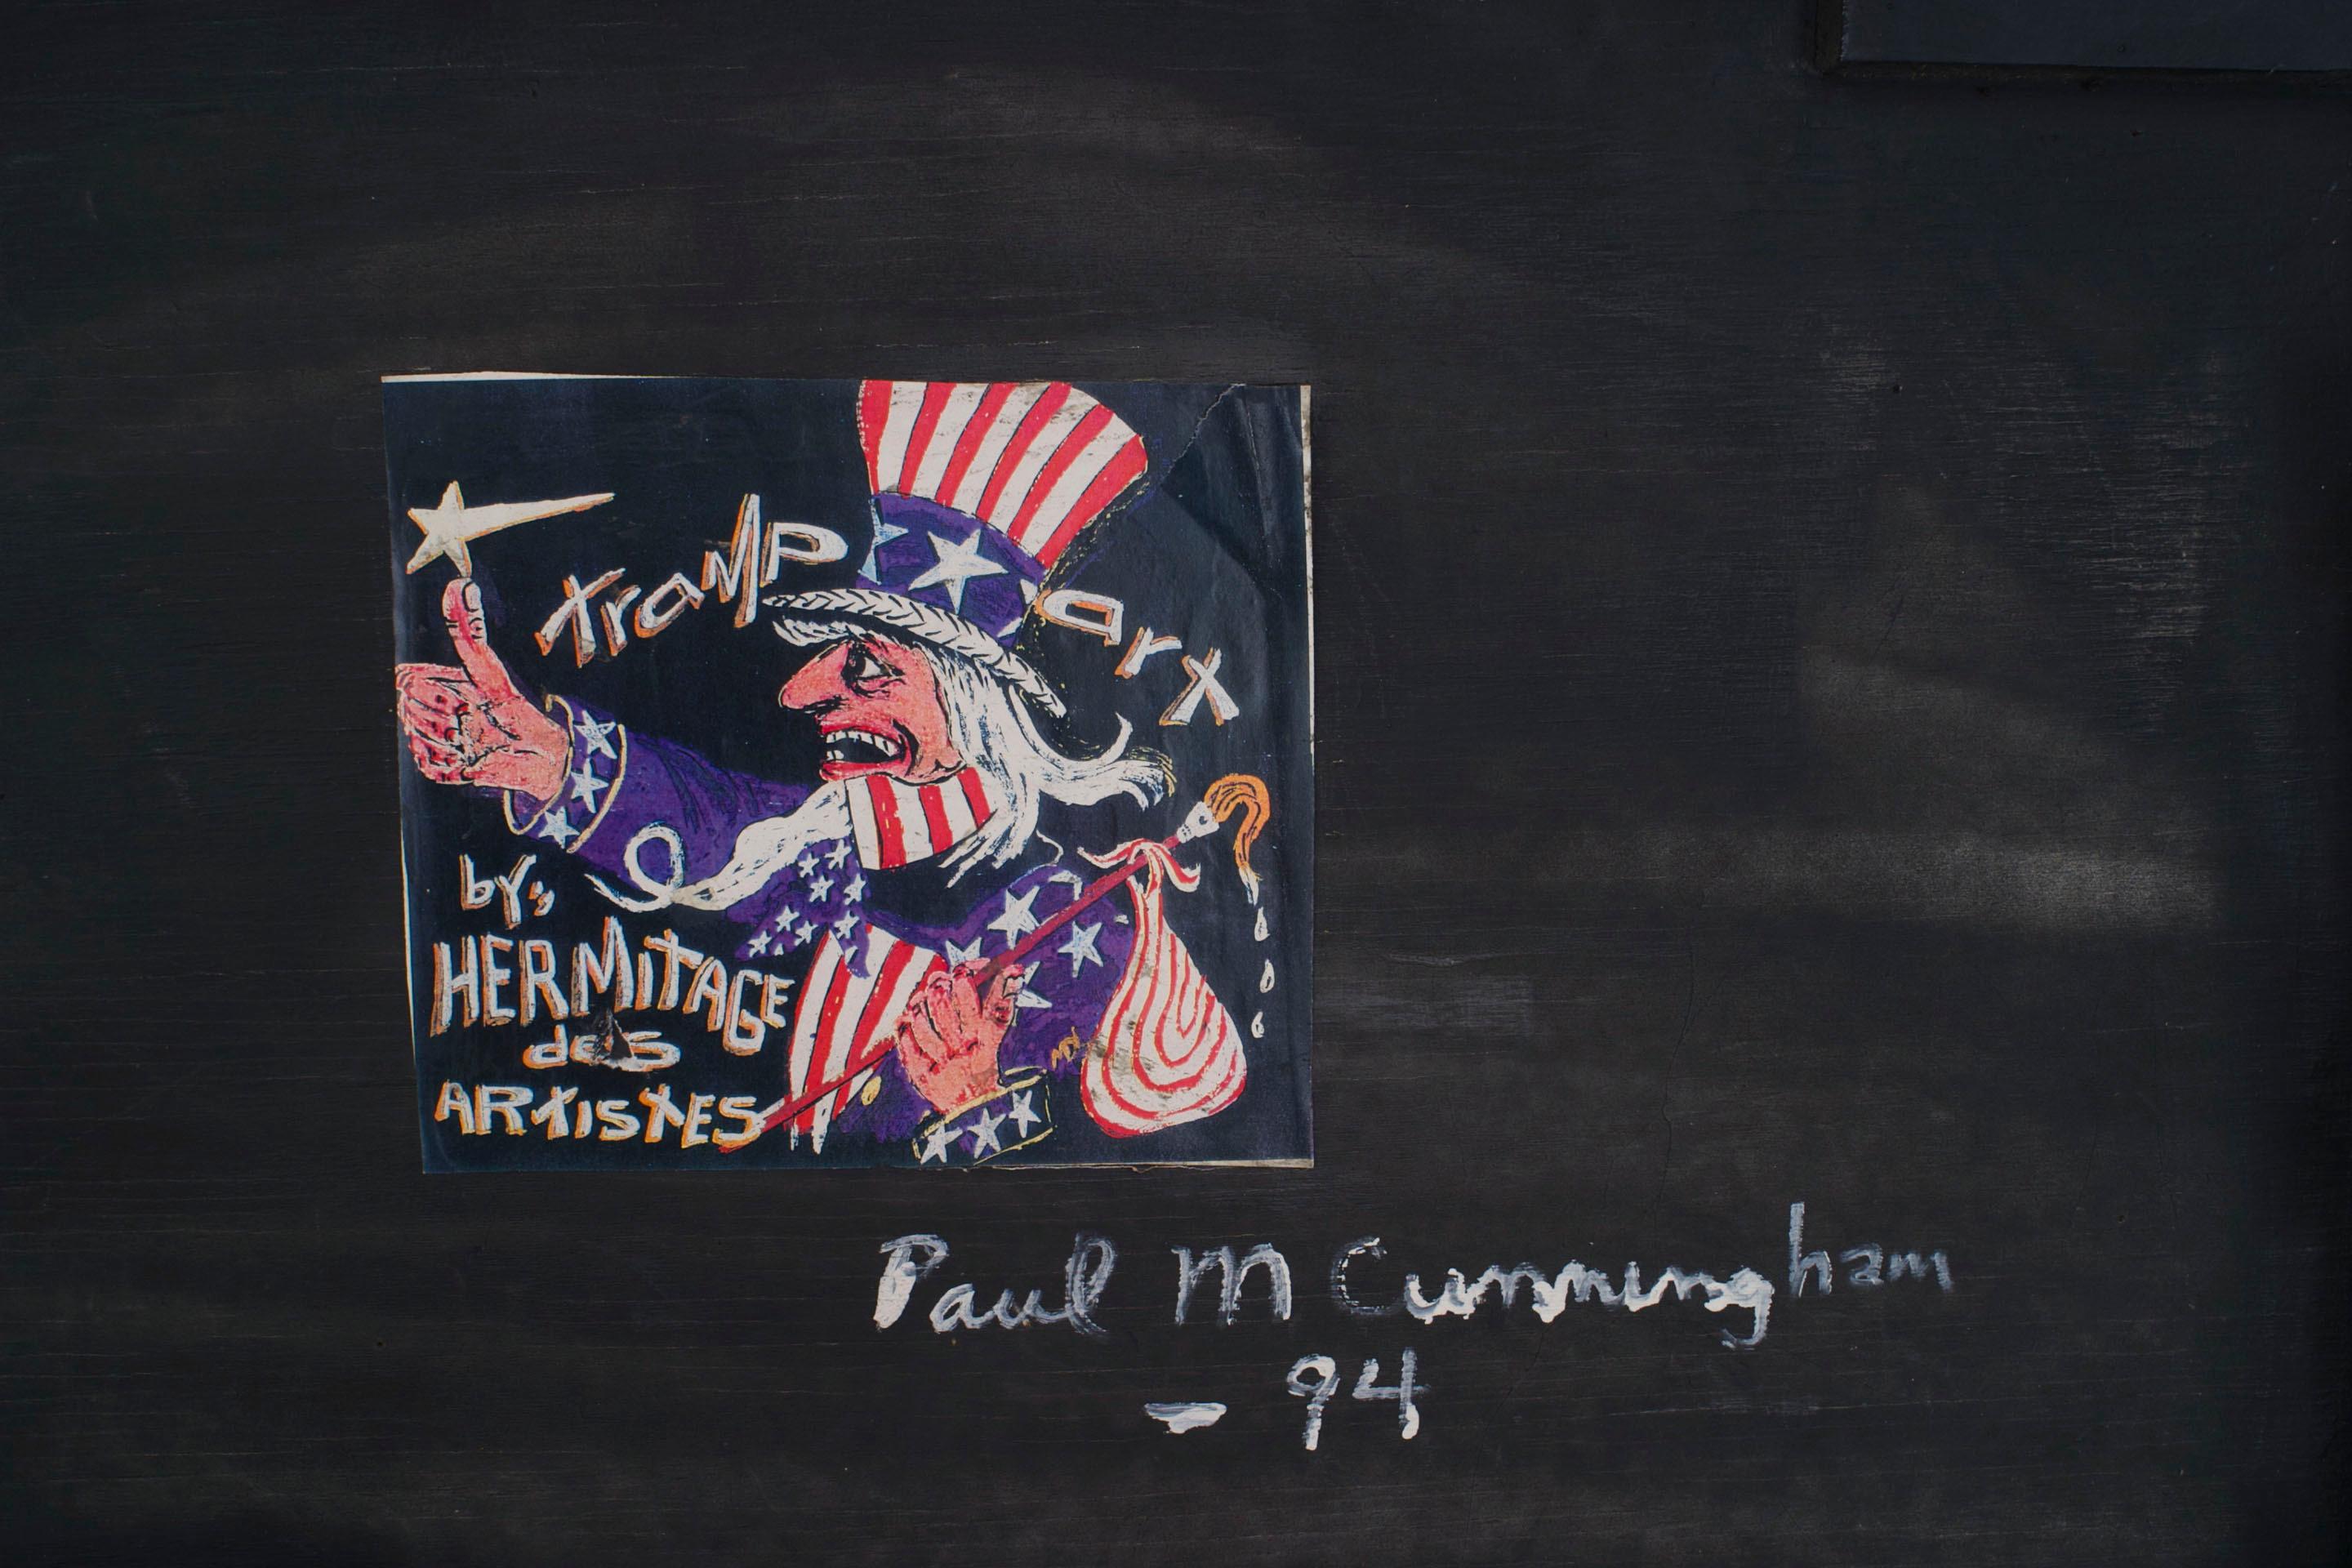 tramp art
by;
HERMitAGE
des
ARtistES
Paul M Cunningham
- 94